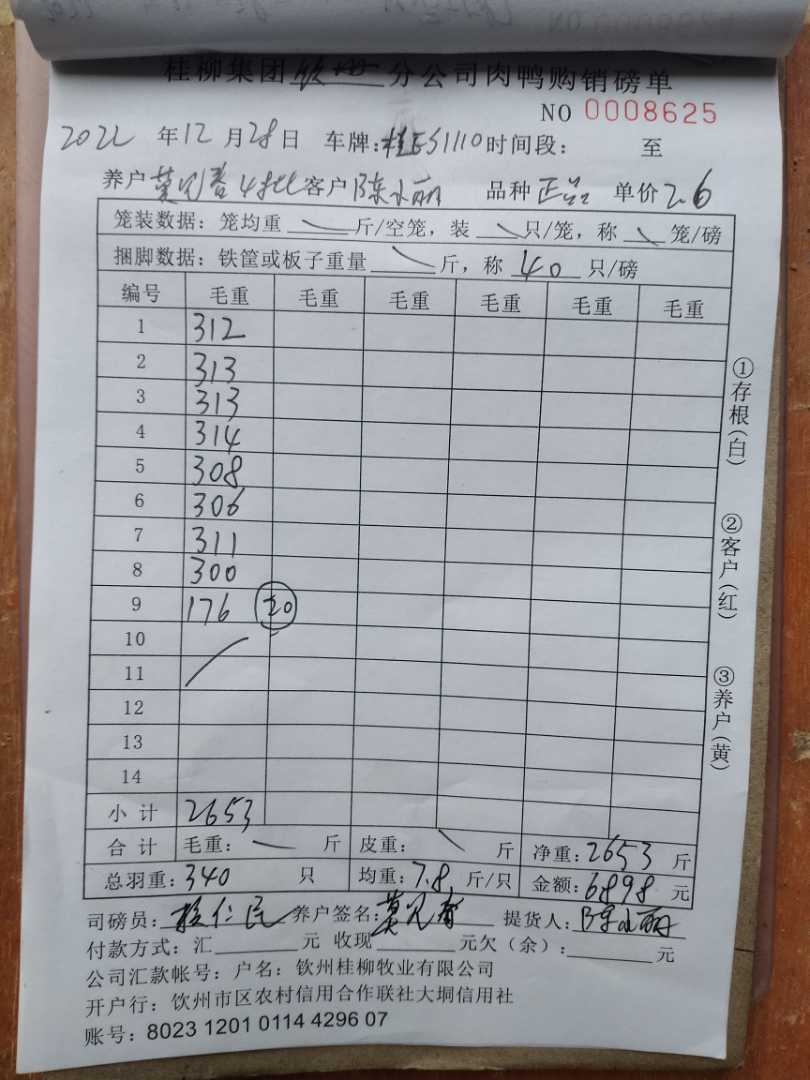 桂柳集团钦州分公司肉鸭购销磅单
NO 0008625
2022年12月28日 车牌:桂ES1110 时间段: 至
养户 莫兄 4批 客户 陈小丽 品种 正品 单价 2.6
笼装数据: 笼均重 斤/空笼, 装 只/笼, 称 笼/磅
捆脚数据: 铁筐或板子重量 斤, 称 40 只/磅
编号 毛重 毛重 毛重 毛重 毛重 毛重
1 312
2 313
3 313
4 314
5 308
6 306
7 311
8 300
9 176 20
10
11
12
13
14
小计 2653
合计 毛重: 斤 皮重: 斤 净重: 2653 斤
总羽重: 340 只 均重: 7.8 斤/只 金额: 6898 元
司磅员: 仁民 养户签名: 莫兄 提货人: 陈小丽
付款方式: 汇 元 收现 元欠(余): 元
公司汇款帐号: 户名: 钦州桂柳牧业有限公司
开户行: 钦州市区农村信用合作联社大垌信用社
账号: 8023 1201 0114 4296 07
①存根(白)
②客户(红)
③养户(黄)